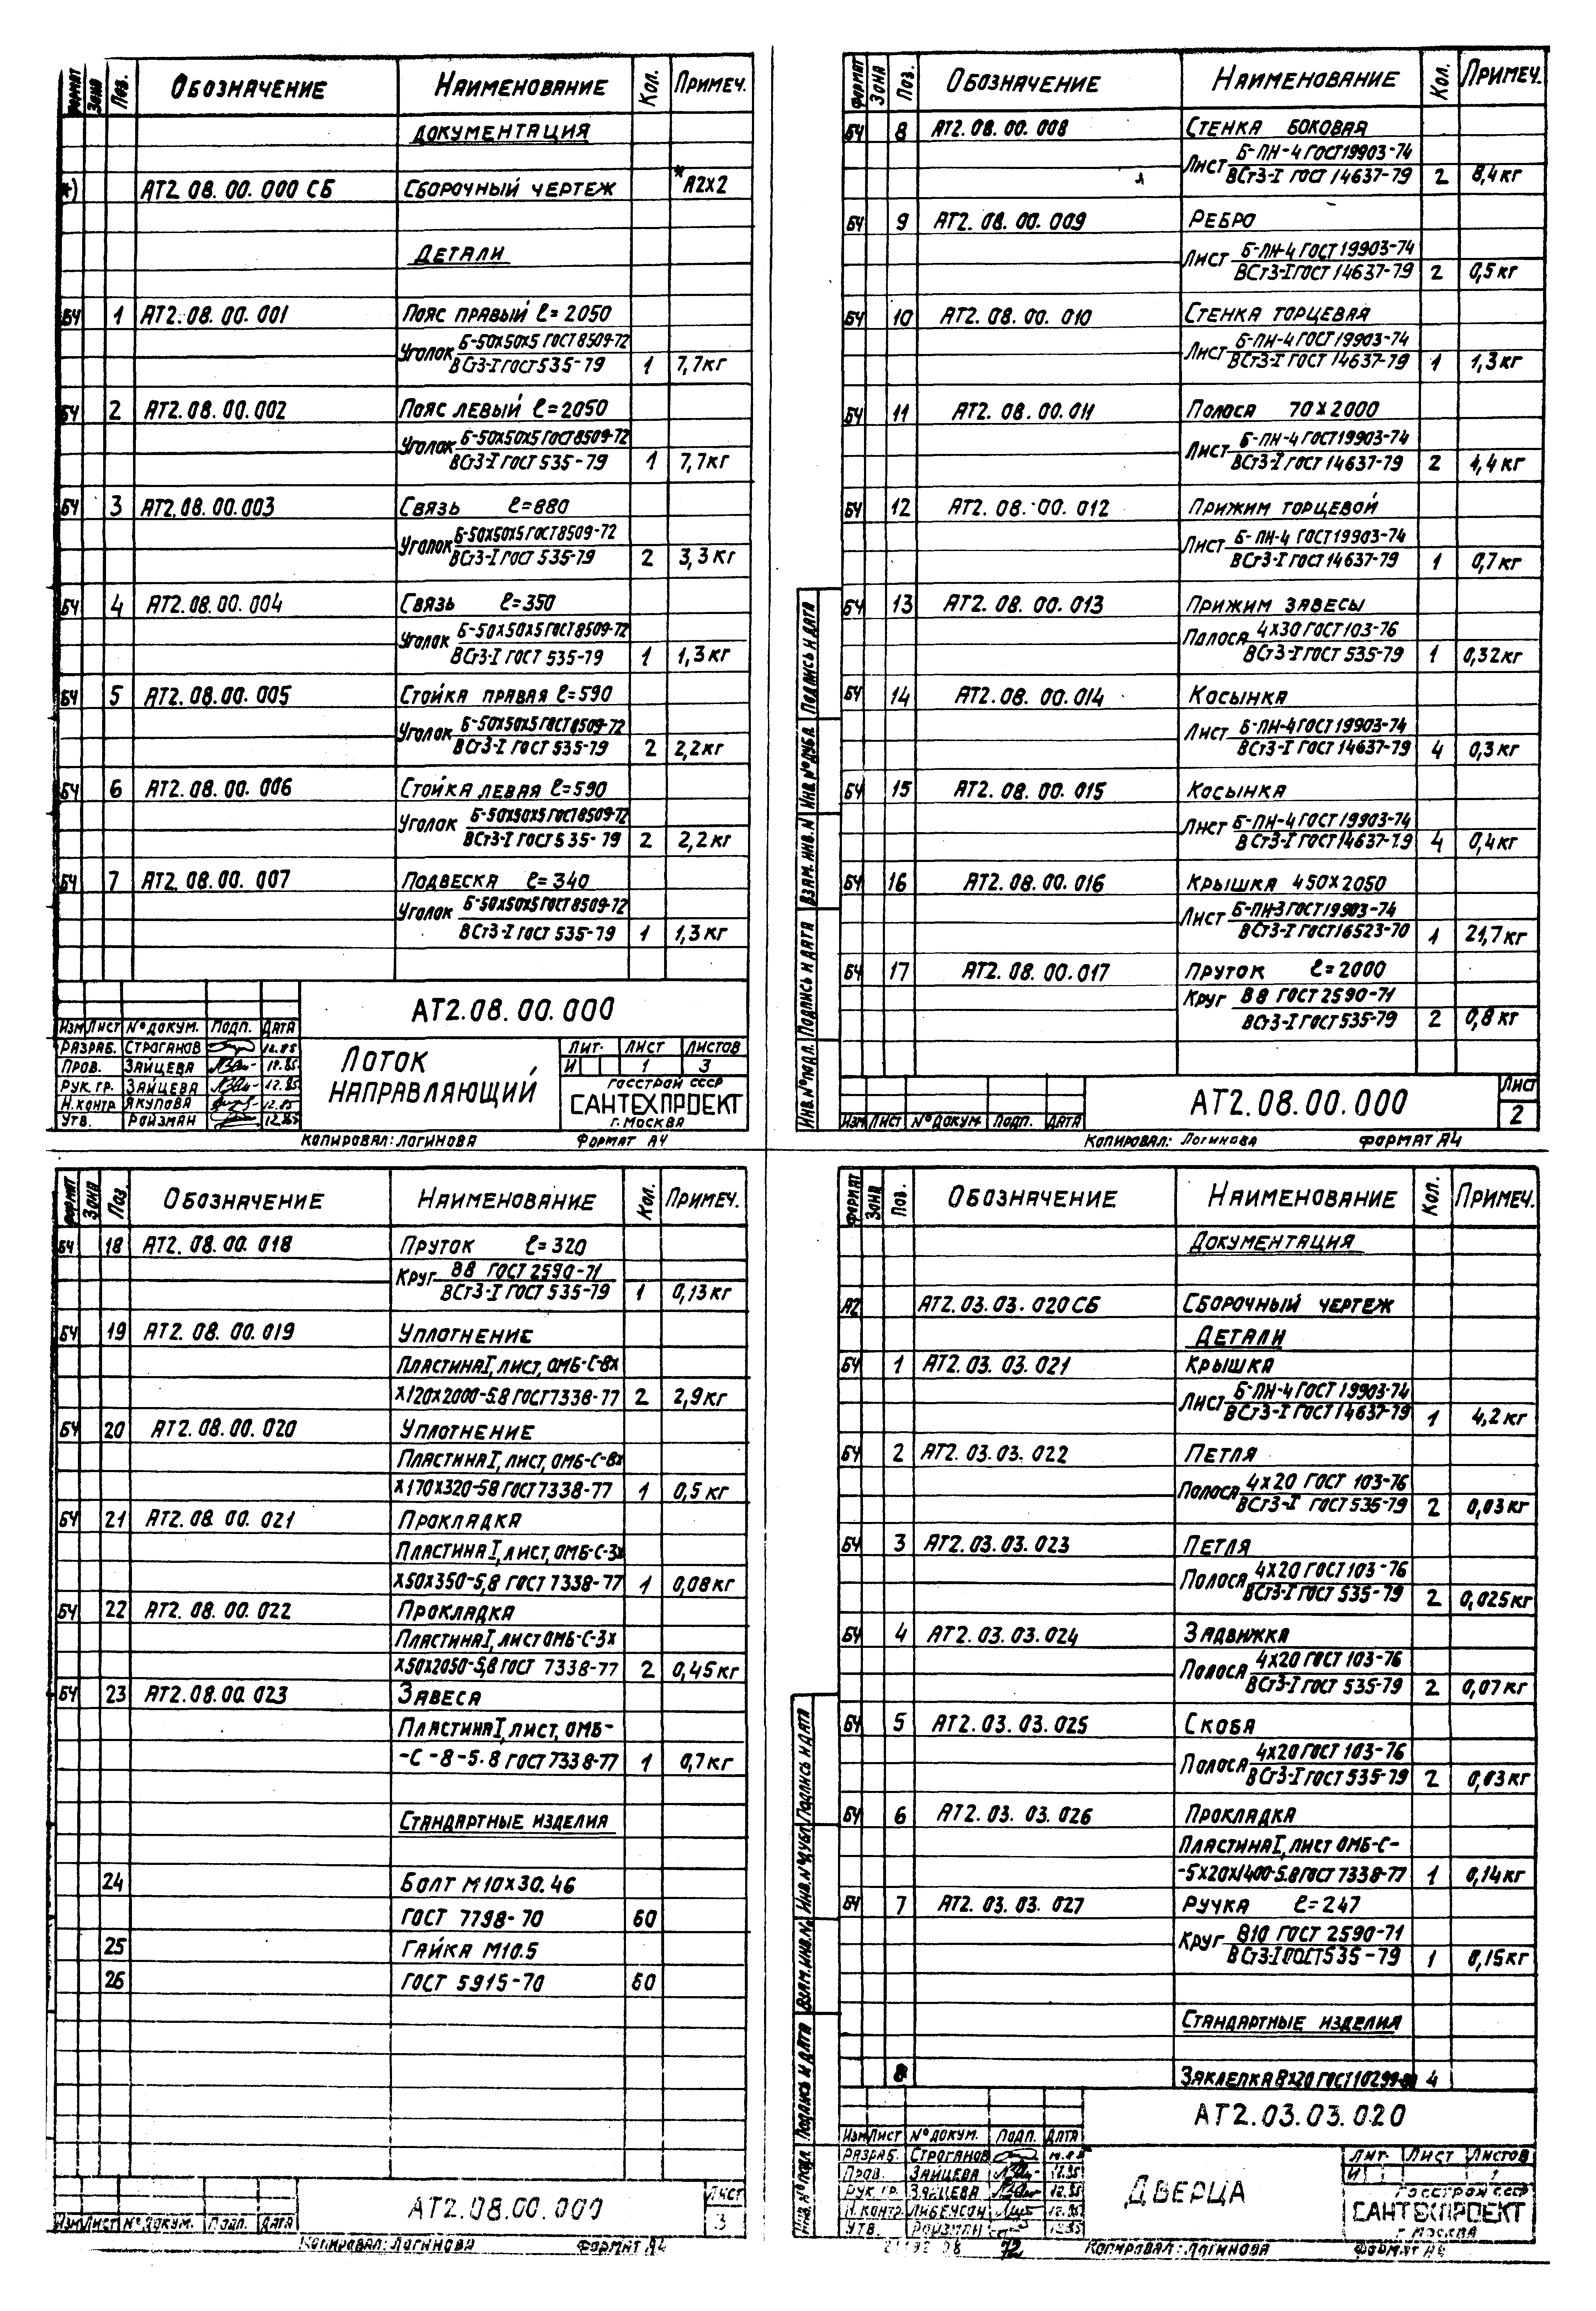 ФОРМАТ ЗОНА Поз. ОБОЗНАЧЕНИЕ НАИМЕНОВАНИЕ Кол. ПРИМЕЧ.
ДОКУМЕНТАЦИЯ
*) АТ2.08.00.000 СБ СБОРОЧНЫЙ ЧЕРТЕЖ *А2х2
ДЕТАЛИ
БЧ 1 АТ2.08.00.001 ПОЯС ПРАВЫЙ ℓ=2050
УГОЛОК Б-50х50х5 ГОСТ 8509-72
ВСт3-I ГОСТ 535-79 1 7,7кг
БЧ 2 АТ2.08.00.002 ПОЯС ЛЕВЫЙ ℓ=2050
УГОЛОК Б-50х50х5 ГОСТ 8509-72
ВСт3-I ГОСТ 535-79 1 7,7кг
БЧ 3 АТ2.08.00.003 СВЯЗЬ ℓ=880
УГОЛОК Б-50х50х5 ГОСТ 8509-72
ВСт3-I ГОСТ 535-79 2 3,3кг
БЧ 4 АТ2.08.00.004 СВЯЗЬ ℓ=350
УГОЛОК Б-50х50х5 ГОСТ 8509-72
ВСт3-I ГОСТ 535-79 1 1,3кг
БЧ 5 АТ2.08.00.005 СТОЙКА ПРАВАЯ ℓ=590
УГОЛОК Б-50х50х5 ГОСТ 8509-72
ВСт3-I ГОСТ 535-79 2 2,2кг
БЧ 6 АТ2.08.00.006 СТОЙКА ЛЕВАЯ ℓ=590
УГОЛОК Б-50х50х5 ГОСТ 8509-72
ВСт3-I ГОСТ 535-79 2 2,2кг
БЧ 7 АТ2.08.00.007 ПОДВЕСКА ℓ=340
УГОЛОК Б-50х50х5 ГОСТ 8509-72
ВСт3-I ГОСТ 535-79 1 1,3кг
АТ2.08.00.000
ИЗМ ЛИСТ № ДОКУМ. ПОДП. ДАТА
РАЗРАБ. СТРОГАНОВ 12.85
ПРОВ. ЗАЙЦЕВА 12.85
РУК.ГР. ЗАЙЦЕВА 12.85
Н.КОНТР ЯКУПОВА 12.85
УТВ. РОЙЗМАН 12.85
ЛОТОК
НАПРАВЛЯЮЩИЙ
ЛИТ. ЛИСТ ЛИСТОВ
И 1 3
ГОССТРОЙ СССР
САНТЕХПРОЕКТ
Г. МОСКВА
КОПИРОВАЛ: ЛОГИНОВА ФОРМАТ А4
ФОРМАТ ЗОНА Поз. ОБОЗНАЧЕНИЕ НАИМЕНОВАНИЕ Кол. ПРИМЕЧ.
БЧ 8 АТ2.08.00.008 СТЕНКА БОКОВАЯ
ЛИСТ Б-ПН-4 ГОСТ 19903-74
ВСт3-I ГОСТ 14637-79 2 8,4кг
БЧ 9 АТ2.08.00.009 РЕБРО
ЛИСТ Б-ПН-4 ГОСТ 19903-74
ВСт3-I ГОСТ 14637-79 2 0,5кг
БЧ 10 АТ2.08.00.010 СТЕНКА ТОРЦЕВАЯ
ЛИСТ Б-ПН-4 ГОСТ 19903-74
ВСт3-I ГОСТ 14637-79 1 1,3кг
БЧ 11 АТ2.08.00.011 ПОЛОСА 70х2000
ЛИСТ Б-ПН-4 ГОСТ 19903-74
ВСт3-I ГОСТ 14637-79 2 4,4кг
БЧ 12 АТ2.08.00.012 ПРИЖИМ ТОРЦЕВОЙ
ЛИСТ Б-ПН-4 ГОСТ 19903-74
ВСт3-I ГОСТ 14637-79 1 0,7кг
БЧ 13 АТ2.08.00.013 ПРИЖИМ ЗАВЕСЫ
ПОЛОСА 4х30 ГОСТ 103-76
ВСт3-I ГОСТ 535-79 1 0,32кг
БЧ 14 АТ2.08.00.014 КОСЫНКА
ЛИСТ Б-ПН-4 ГОСТ 19903-74
ВСт3-I ГОСТ 14637-79 4 0,3кг
БЧ 15 АТ2.08.00.015 КОСЫНКА
ЛИСТ Б-ПН-4 ГОСТ 19903-74
ВСт3-I ГОСТ 14637-79 4 0,4кг
БЧ 16 АТ2.08.00.016 КРЫШКА 450х2050
ЛИСТ Б-ПН-3 ГОСТ 19903-74
ВСт3-I ГОСТ 16523-70 1 21,7кг
БЧ 17 АТ2.08.00.017 ПРУТОК ℓ=2000
КРУГ В8 ГОСТ 2590-71
ВСт3-I ГОСТ 535-79 2 0,8кг
ИНВ.№ ПОДЛ. ПОДПИСЬ И ДАТА ВЗАМ. ИНВ.№ ИНВ.№ ДУБЛ. ПОДПИСЬ И ДАТА
ИЗМ ЛИСТ № ДОКУМ. ПОДП. ДАТА
АТ2.08.00.000
ЛИСТ
2
КОПИРОВАЛ: ЛОГИНОВА ФОРМАТ А4
ФОРМАТ ЗОНА Поз. ОБОЗНАЧЕНИЕ НАИМЕНОВАНИЕ Кол. ПРИМЕЧ.
БЧ 18 АТ2.08.00.018 ПРУТОК ℓ=320
КРУГ В8 ГОСТ 2590-71
ВСт3-I ГОСТ 535-79 1 0,13кг
БЧ 19 АТ2.08.00.019 УПЛОТНЕНИЕ
ПЛАСТИНА I, ЛИСТ, ОМБ-С-8х
х120х2000-5.8 ГОСТ 7338-77 2 2,9кг
БЧ 20 АТ2.08.00.020 УПЛОТНЕНИЕ
ПЛАСТИНА I, ЛИСТ, ОМБ-С-8х
х170х320-58 ГОСТ 7338-77 1 0,5кг
БЧ 21 АТ2.08.00.021 ПРОКЛАДКА
ПЛАСТИНА I, ЛИСТ, ОМБ-С-3х
х50х350-5,8 ГОСТ 7338-77 1 0,08кг
БЧ 22 АТ2.08.00.022 ПРОКЛАДКА
ПЛАСТИНА I, ЛИСТ ОМБ-С-3х
х50х2050-5,8 ГОСТ 7338-77 2 0,45кг
БЧ 23 АТ2.08.00.023 ЗАВЕСА
ПЛАСТИНА I, ЛИСТ, ОМБ-
-С-8-5.8 ГОСТ 7338-77 1 0,7кг
СТАНДАРТНЫЕ ИЗДЕЛИЯ
24 БОЛТ М10х30.46
ГОСТ 7798-70 60
25 ГАЙКА М10.5
26 ГОСТ 5915-70 60
ИЗМ ЛИСТ № ДОКУМ. ПОДП. ДАТА
АТ2.08.00.000
ЛИСТ
3
КОПИРОВАЛ: ЛОГИНОВА ФОРМАТ А4
ФОРМАТ ЗОНА Поз. ОБОЗНАЧЕНИЕ НАИМЕНОВАНИЕ Кол. ПРИМЕЧ.
ДОКУМЕНТАЦИЯ
А2 АТ2.03.03.020 СБ СБОРОЧНЫЙ ЧЕРТЕЖ
ДЕТАЛИ
БЧ 1 АТ2.03.03.021 КРЫШКА
ЛИСТ Б-ПН-4 ГОСТ 19903-74
ВСт3-I ГОСТ 14637-79 1 4,2кг
БЧ 2 АТ2.03.03.022 ПЕТЛЯ
ПОЛОСА 4х20 ГОСТ 103-76
ВСт3-I ГОСТ 535-79 2 0,03кг
БЧ 3 АТ2.03.03.023 ПЕТЛЯ
ПОЛОСА 4х20 ГОСТ 103-76
ВСт3-I ГОСТ 535-79 2 0,025кг
БЧ 4 АТ2.03.03.024 ЗАДВИЖКА
ПОЛОСА 4х20 ГОСТ 103-76
ВСт3-I ГОСТ 535-79 2 0,07кг
БЧ 5 АТ2.03.03.025 СКОБА
ПОЛОСА 4х20 ГОСТ 103-76
ВСт3-I ГОСТ 535-79 2 0,03кг
БЧ 6 АТ2.03.03.026 ПРОКЛАДКА
ПЛАСТИНА I, ЛИСТ ОМБ-С-
-5х20х1400-5.8 ГОСТ 7338-77 1 0,14кг
БЧ 7 АТ2.03.03.027 РУЧКА ℓ=247
КРУГ В10 ГОСТ 2590-71
ВСт3-I ГОСТ 535-79 1 0,15кг
СТАНДАРТНЫЕ ИЗДЕЛИЯ
8 ЗАКЛЕПКА 8х20 ГОСТ 10299-80 4
ИНВ.№ ПОДЛ. ПОДПИСЬ И ДАТА ВЗАМ. ИНВ.№ ИНВ.№ ДУБЛ. ПОДПИСЬ И ДАТА
АТ2.03.03.020
ИЗМ ЛИСТ № ДОКУМ. ПОДП. ДАТА
РАЗРАБ. СТРОГАНОВ
ПРОВ. ЗАЙЦЕВА 12.85
РУК.ГР. ЗАЙЦЕВА 12.85
Н.КОНТР ЛИБЕНСОН 12.85
УТВ. РОЙЗМАН 12.85
ДВЕРЦА
ЛИТ. ЛИСТ ЛИСТОВ
И 1
ГОССТРОЙ СССР
САНТЕХПРОЕКТ
Г. МОСКВА
21192 08 72 КОПИРОВАЛ: ЛОГИНОВА ФОРМАТ А4